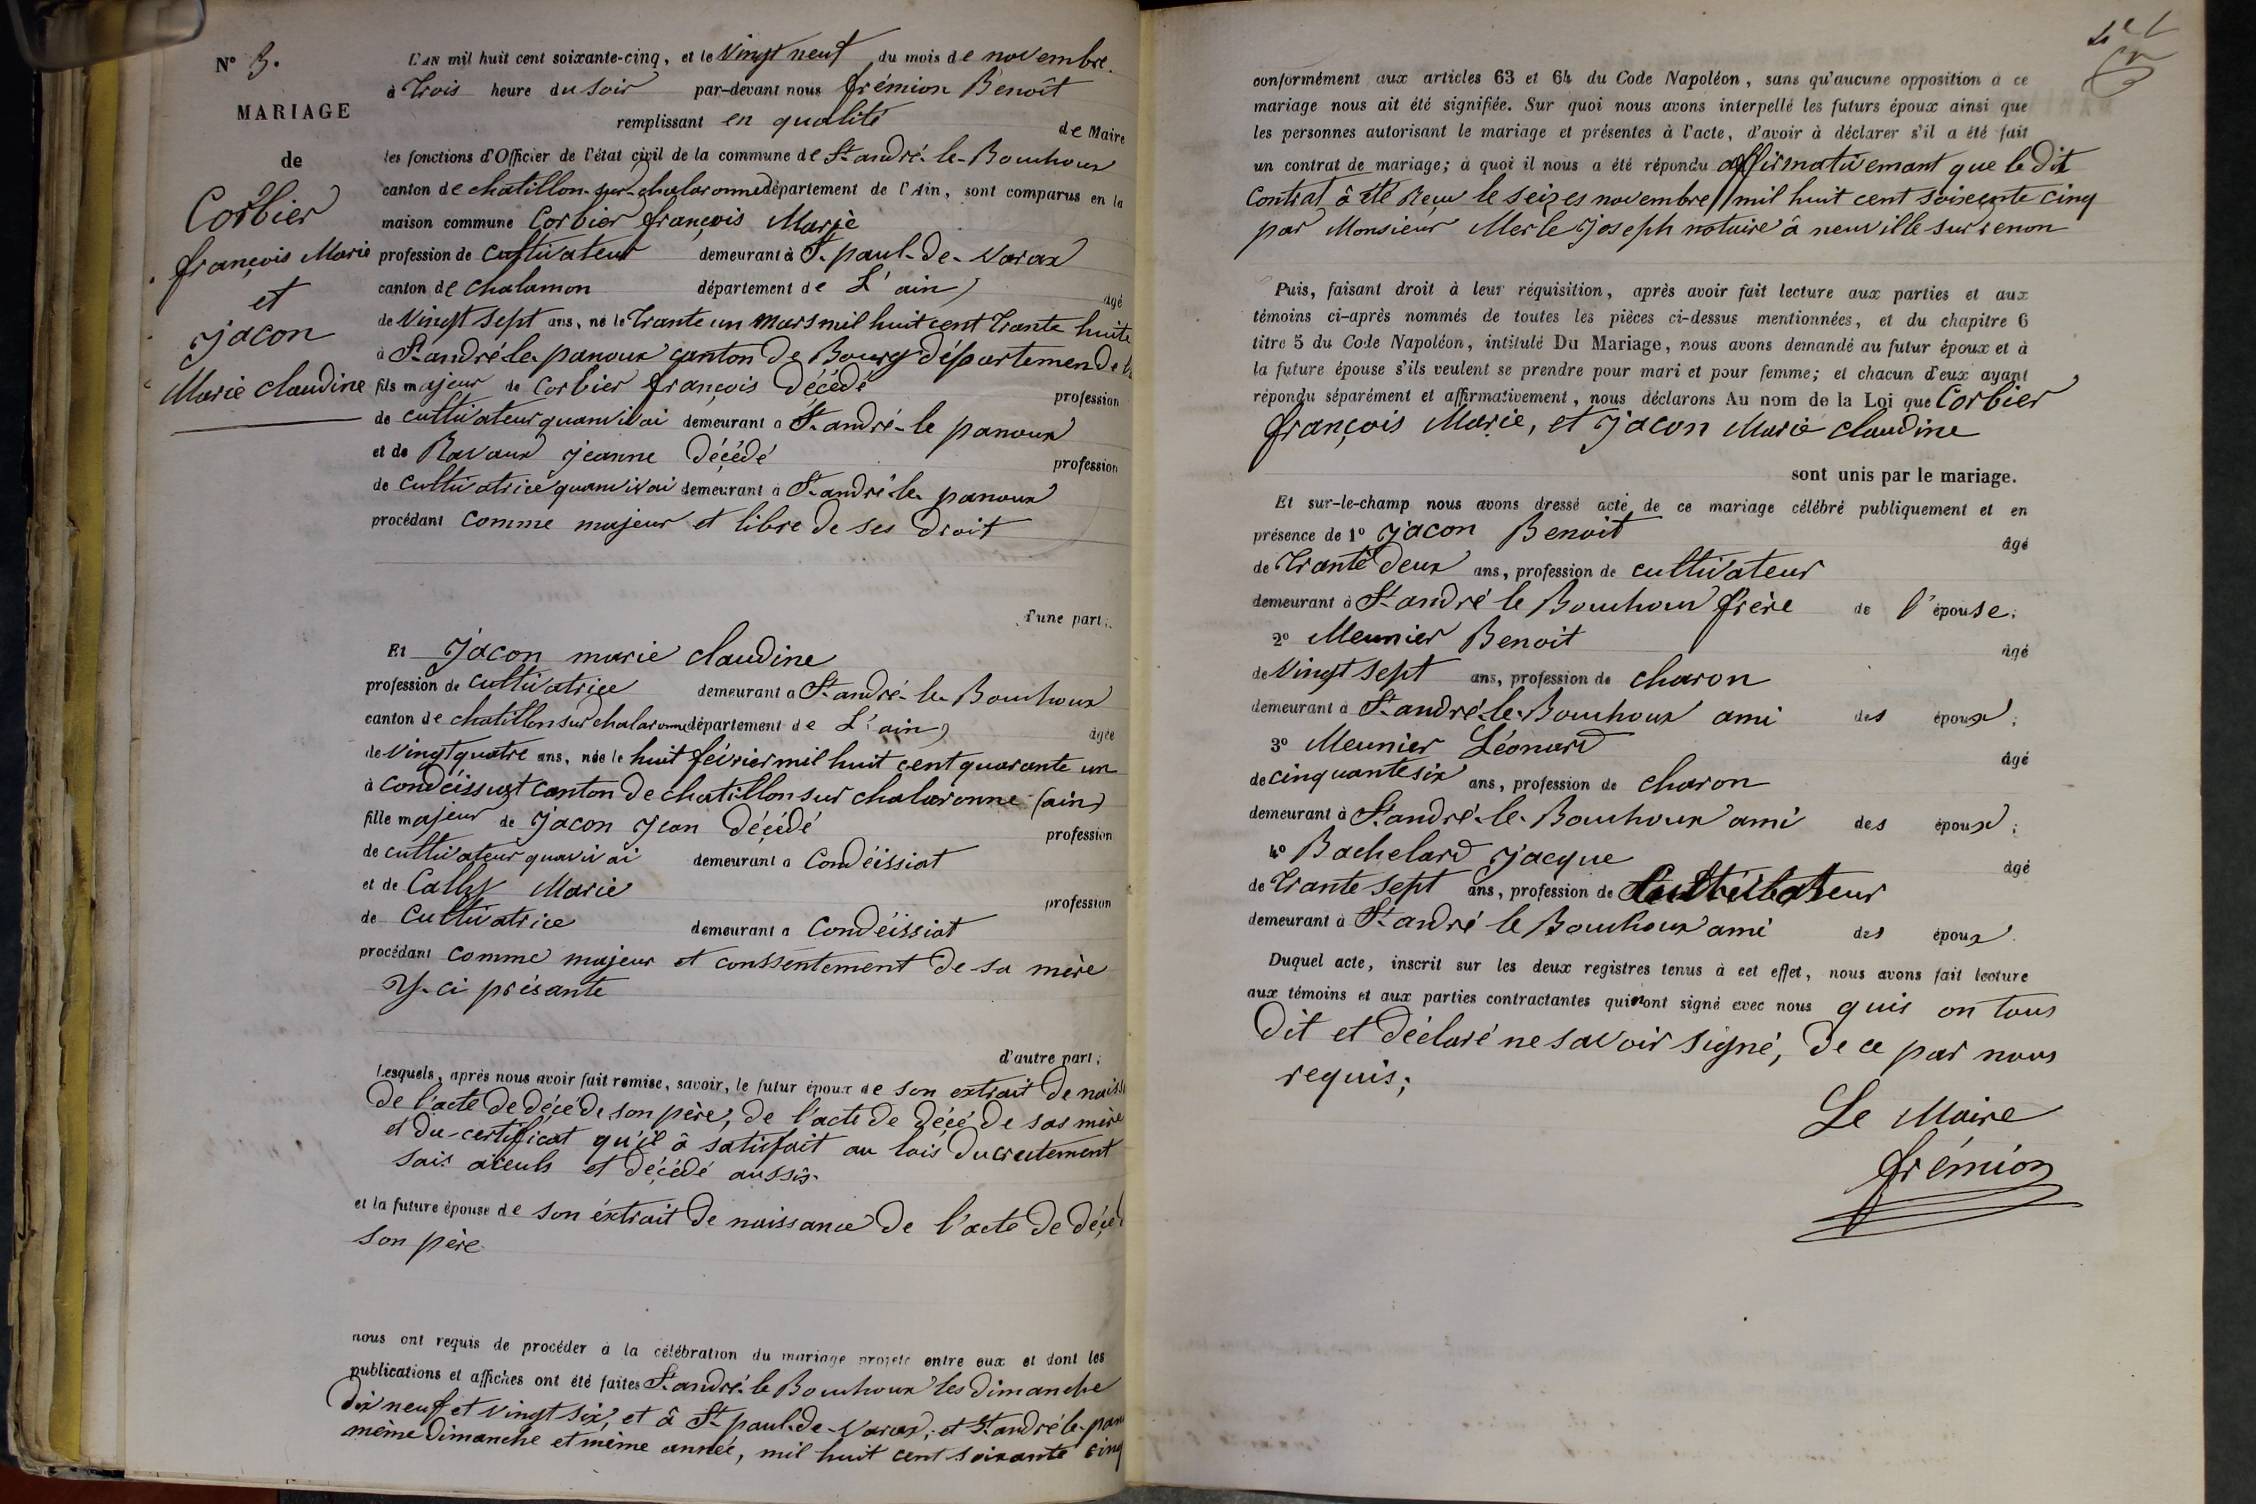 N° 3.
MARIAGE
de
Corbier
françois Marie
et
Jacon
Marie claudine
L'AN mil huit cent soixante-cinq, et le vingt neuf du mois de novembre.
à trois heure du soir par-devant nous frémion Benoît
remplissant en qualité de Maire
les fonctions d'Officier de l'état civil de la commune de St andré-le-Bouchoux
canton de chatillon-sur-chalaronne département de l'Ain, sont comparus en la
maison commune Corbier françois Marie
profession de cultivateur demeurant à St paul-de-Varax
canton de chalamon département de L'ain)
âgé
de vingt sept ans, né le trante un mars mil huit cent trante huite
à St andré le panoux canton de Bourg départemen de l
fils majeur de Corbier françois décédé
profession
de cultivateur quanvivai demeurant à St andré-le panoux
et de Ravaux jeanne décédé
profession
de cultivatrice quanvivai demeurant à St andré le panoux
procédant comme majeur et libre de ses droit
d'une part;
Et Jacon marie claudine
profession de cultivatrice demeurant à St andré-le-Bouchoux
canton de chatillon sur chalaronne département de L'ain)
âgée
de vingt quatre ans, née le huit février mil huit cent quarante un
à condéissiat canton de chatillon sur chalaronne (ain)
fille majeur de jacon jean décédé
profession
de cultivateur quavivai demeurant à Condéissiat
et de Cally Marie
profession
de cultivatrice demeurant à Condéissiat
procédant comme majeur et conssentement de sa mère
Y-ci présante
d'autre part;
Lesquels, après nous avoir fait remise, savoir, le futur époux de son extrait de naiss
de l'acte de décé de son père, de l'acte de décé de sas mère
et du-certificat qu'il â satisfait au lois ducreutement
sais aieuls et décédé aussis-
et la future épouse de son éxtrait de naissance de l'acte de décé d
son père
nous ont requis de procéder à la célébration du mariage projeté entre eux et dont les
publications et affiches ont été faites St andré le Bouchoux les dimanche
dix neuf et vingt six, et â St paul-de-Varax, et St andré le-pan
même dimanche et même année, mil huit cent soixante cinq
conformément aux articles 63 et 64 du Code Napoléon, sans qu'aucune opposition à ce
mariage nous ait été signifiée. Sur quoi nous avons interpellé les futurs époux ainsi que
les personnes autorisant le mariage et présentes à l'acte, d'avoir à déclarer s'il a été fait
un contrat de mariage; à quoi il nous a été répondu affirmativemant que le dit
Contrat â été reçu le seizes novembre mil huit cent soixente cinq
par Monsieur Merle Joseph notaire â neuville sur renon
Puis, faisant droit à leur réquisition, après avoir fait lecture aux parties et aux
témoins ci-après nommés de toutes les pièces ci-dessus mentionnées, et du chapitre 6
titre 5 du Code Napoléon, intitulé Du Mariage, nous avons demandé au futur époux et à
la future épouse s'ils veulent se prendre pour mari et pour femme; et chacun d'eux ayant
répondu séparément et affirmativement, nous déclarons Au nom de la Loi que Corbier
françois Marie, et Jacon Marie claudine
sont unis par le mariage.
Et sur-le-champ nous avons dressé acte de ce mariage célébré publiquement et en
présence de 1° Jacon Benoit
âgé
de trante deux ans, profession de cultivateur
demeurant à St andré le Bouchoux frère de l'épouse;
2° Meunier Benoit
âgé
de vingt sept ans, profession de charon
demeurant à St andré-le-Bouchoux ami des époux;
3° Meunier Léonard
âgé
de cinquante six ans, profession de charon
demeurant à St andré-le-Bouchoux ami des époux;
4° Bachelard jacque
âgé
de trante sept ans, profession de Cultivateur
demeurant à St andré le Bouchoux ami des époux
Duquel acte, inscrit sur les deux registres tenus à cet effet, nous avons fait lecture
aux témoins et aux parties contractantes qui ont signé avec nous quis on tous
dit et déclaré ne savoir signé, de ce par nous
requis;
Le Maire
frémion